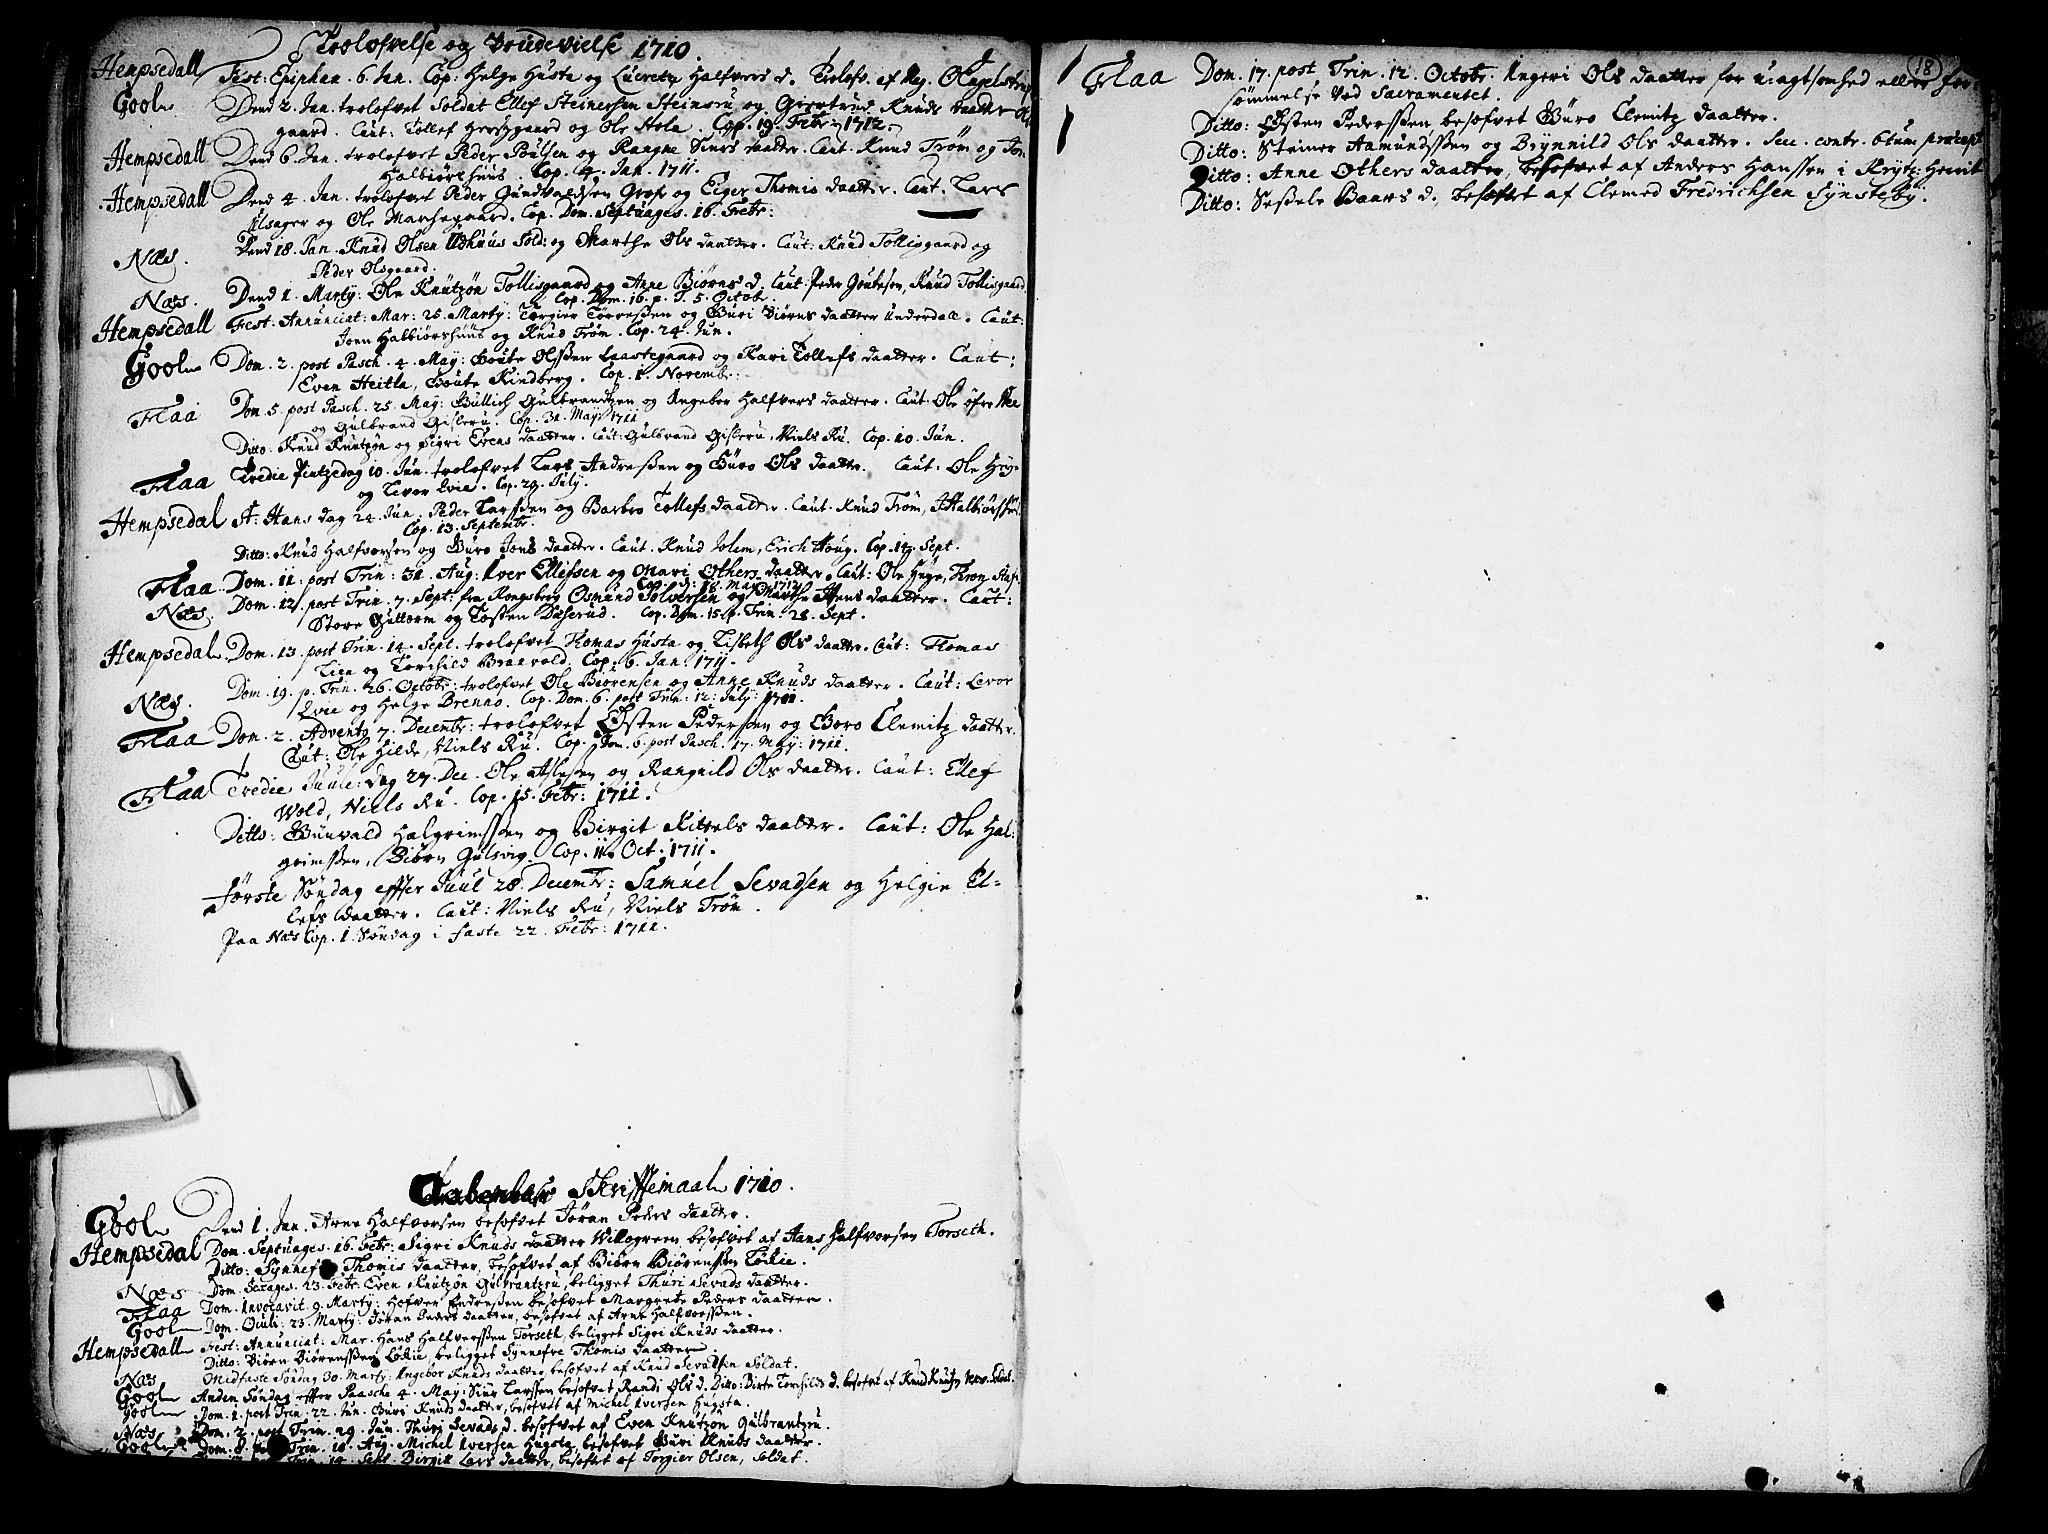 Trolofvelse og Brudevielse 1710.
Hempsedall Fest: Epiphan. 6. Jan. Cop: Helge Husta og Lucretz Halfvers d. Trolofv. af Mag.
Gool Dend 2. Jan. trolofvet Soldat Ellef Steinersen Steinsru og Giertrud Knuds daatter
gaard. Caut: Tollef og Ole Hola. Cop. 19. Febr: 1712.
Hempsedall Dend 6. Jan. trolofvet Peder Poulsen og Rangne Siurs daatter. Caut. Knud Trøm og Jon
Halbiørshuus. Cop. 4. Jan. 1711.
Hempsedall Dend 4. Jan. trolofvet Peder Gundvaldsen Grøf og Eiger Thomis daatter. Caut. Lars
Ulsager og Ole Marchegaard. Cop. Dom. Septuages. 16. Febr:
Næs. Dend 18. Jan. Knud Olsen Sold: og Marthe Ols daatter. Caut: Knud Tollisgaard og
Peder Olsgaard.
Næs. Dend 1. Marty: Ole Knutzøn Tollisgaard og Anne Biørns d. Caut: Peder Goutesen, Knud Tollisgaard
Cop. Dom. 16. p. T. 5. Octobr.
Hempsedall Fest: Annunciat: Mar: 25. Marty: Torgier Torressen og Guri Biørns daatter Underdall. Caut:
Joen Halbiørshuus og Knud Trøm. Cop. 24. Jun.
Gool Dom. 2. post Pasch. 4. May: Goute Olssen Laastegaard og Kari Tollefs daatter. Caut:
Even Heitla, Goute Kindberg. Cop. 1. Novembr:
Flaa Dom. 5. post Pasch. 25. May: Gullich Gulbrandtzen og Ingeber Halfvers daatter. Caut. Ole øfre
og Gulbrand Gisleru. Cop. 31. May 1711
Ditto. Knud Knutzøn og Sigri Evens daatter. Caut: Gulbrand Gisleru, Niels Ru. Cop. 10. Jun.
Flaa Tredie Pintzedag 10. Jun. trolofvet Lars Andressen og Guro Ols daatter. Caut: Ole
og Levor Lvie. Cop. 29. July.
Hempsedal St: Hans dag 24. Jun. Peder Larssen og Barbro Tollefs daatter. Caut. Knud Trøm,
Cop. 13. Septembr.
Ditto: Knud Halfvorsen og Guro Jons daatter. Caut. Knud Jolem, Erich Houg. Cop. 14. Sept.
Flaa Dom. 11. post Trin: 31. Aug: Iver Ellefsen og Mari Others daatter. Caut: Ole
Cop. d. 18. May 1712
Næs. Dom. 12. post Trin. 7. Sept: fra Kongsberg Osmund Solversen og Marthe Hans daatter. Caut:
Store Guttorm og Tosten Daserud. Cop. Dom. 15. p. Trin. 28. Sept.
Hempsedal Dom. 13. post Trin. 14. Sept. trolofvet Thomas Husta og Lisbeth Ols daatter. Caut: Thomas
Lien og Torchild Braavold. Cop. 6. Jan. 1711.
Næs. Dom. 19. p. Trin. 26. Octobr: trolofvet Ole Biørensen og Anne Knuds daatter. Caut: Levor
Lvie og Helge Brenno. Cop. Dom. 6. post Trin. 12. July: 1711.
Flaa Dom. 2. Advents 7. Decembr: trolofvet Østen Pederssen og Goro Clemitz daatter.
Caut: Ole Hilde, Niels Ru. Cop. Dom. 6. post Pasch. 17. May: 1711.
Flaa Tredie Juule dag 27. Dec. Ole Aslessen og Rangnild Ols daatter. Caut: Ellef
Wold, Niels Ru. Cop. 15. Febr: 1711.
Ditto: Gunvald Halgrimssen og Birgit Kittels daatter. Caut: Ole Hal:
grimssen, Biørn Gulsvig. Cop. 11. Oct. 1711.
Første Søndag effter Juul 28. Decembr: Samuel Sevadsen og Helgie El=
lefs daatter. Caut: Niels Ru, Niels Trøm.
Paa Næs Cop. 1. Søndag i faste 22. Febr: 1711.
Aabenbar Skrifftemaal 1710.
Gool Dend 1. Jan. Arne Halfvorsen besofvet Jøran Peders daatter.
Hempsedal Dom. Septuages. 16. Febr: Sigri Knuds daatter Willogreen besofvet af Hans Halfvorsen Torseth.
Ditto: Synnef Thomis daatter, besofvet af Biørn Biørenssen Lødie.
Næs Dom. Sexages. 23. Febr. Even Knutzøn Gulbrantzru, beligget Thuri Sevads daatter.
Flaa Dom. Invocavit 9. Marty: Hofver Endressen besofvet Margrete Peders daatter.
Gool Dom. Oculi: 23. Marty: Jøran Peders daatter, besofvet af Arne Halfvorssen.
Hempsedall Fest: Annunciat: Mar. Hans Halfverssen Torseth, beligget Sigri Knuds daatter.
Ditto: Biørn Biørenssen Lødie, beligget Synnefve Thomis daatter.
Næs Midfaste Søndag 30. Marty: Ingebor Knuds daatter besofvet af Knud Sevadsen Soldat.
Gool Anden Søndag effter Paasche 4. May. Siur Larssen besofvet Randi Ols d. Ditto: Birte Torchilds d. besofvet af Knud
Gool Dom. 1. post Trin. 22. Jun. Guri Knuds daatter, besofvet af Michel Iversen Hugsta.
Næs. Dom. 2. post Trin. 29. Jun. Thuri Sevads d. besofvet af Even Knutzøn Gulbrantzru.
Gool Dom. 8. post Trin. 10. Aug. Michel Iversen Hugsta, besofvet Guri Knuds daatter.
Trin. 14. Sept. Birgit Lars daatter, besofvet af Torgier Olsen, Soldat.
18
Flaa Dom. 17. post Trin. 12. Octobr. Ingeri Ols daatter for uagtsomhed eller for=
sømmelse ved Sacramentet.
Ditto: Østen Pederssen besofvet Guro Clemitz daatter.
Ditto: Steiner Aamundssen og Brynnild Ols daatter. Sec. contr. 6tum præcept
Ditto: Anne Others daatter, besofvet af Anders Hanssen i
Ditto: Sessele Baars d., besofvet af Clemed Fredrichsen Synsteby.